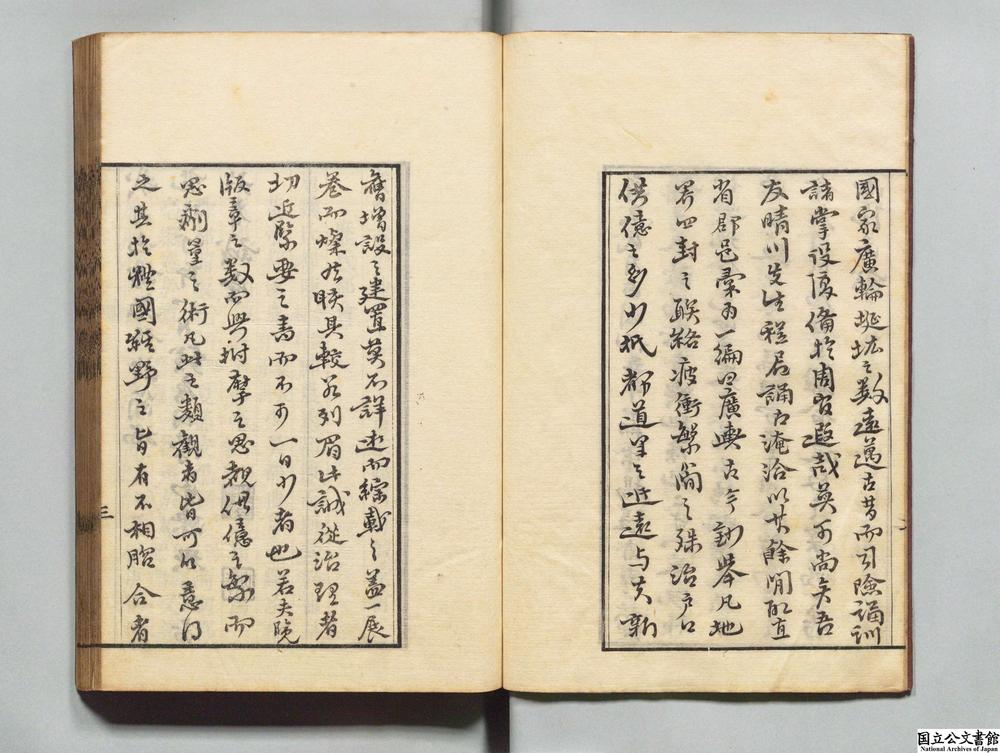 國家廣輪埏垓之數遠邁古昔而司險誦訓
諸掌設復備於周官遐哉莫可尚矣吾
友晴川先生程君誦古淹洽以其餘閒取直
省郡邑彙為一編曰廣輿古今鈔舉凡地
界四封之聯絡疲衝繁簡之殊治戶口
供億之多少抵都道里之近遠与其新
舊增設之建置莫不詳述而綜載之盖一展
卷而燦然賅具較若列眉此誠從治理者
切近緊要之書而不可一日少者也若夫曉
版章之數而興拊摩之思覩供億之繁而
思劑量之術凡此之類觀者皆可以意得
之其於體國經野之旨有不相脗合者
三
国立公文書館
National Archives of Japan